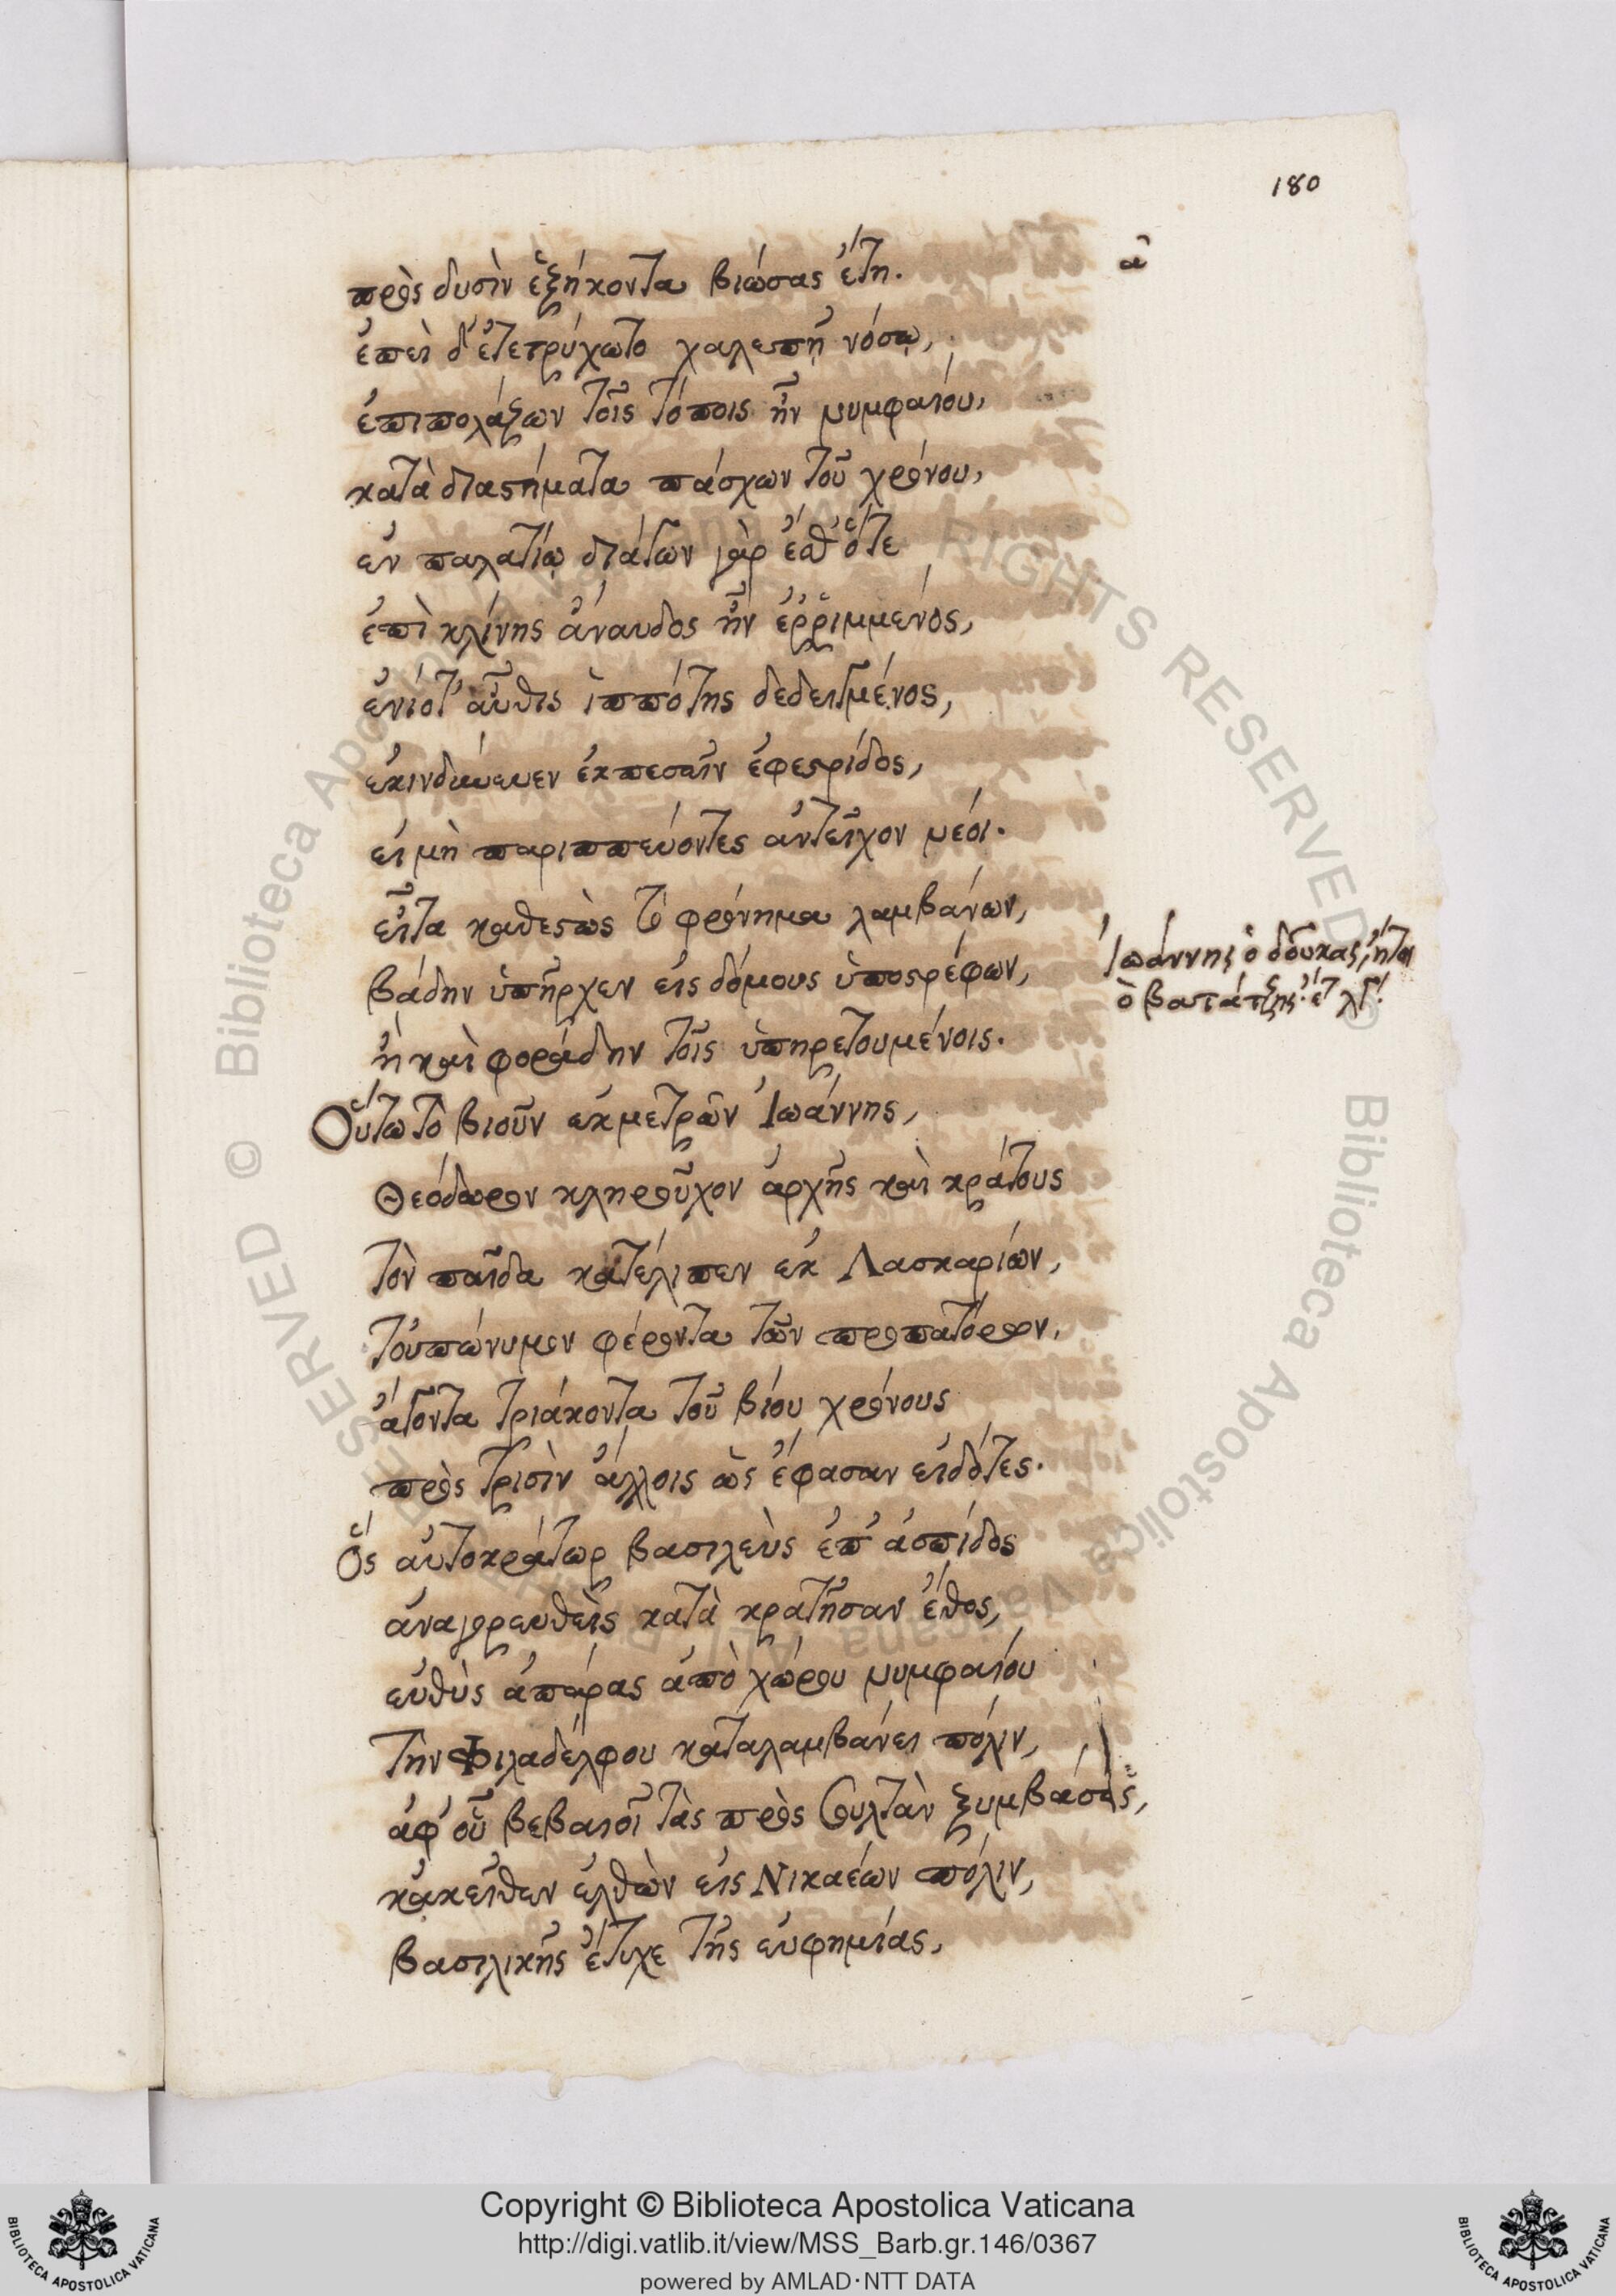 180
α
πρὸς δυσὶν ἑξήκοντα βιώσας ἔτη.
ἐπεὶ δ' ἐτετρύχωτο χαλεπῇ νόσῳ,
ἐπιπολάζων τοῖς τόποις ἦν νυμφαίου,
κατὰ διαστήματα πάσχων τοῦ χρόνου,
ἐν παλατίῳ διάγων γὰρ ἔσθ' ὅτε
ἐπὶ κλίνης ἄναυδος ἦν ἐῤῥιμμένος,
ἐνίοτ' αὖθις ἱππότης δεδειγμένος,
ἐκινδύνευεν ἐκπεσεῖν ἐφεστρίδος,
εἰ μὴ παριππεύοντες ἀντεῖχον νέοι.
εἶτα καθεστὼς τὸ φρόνημα λαμβάνων,
βάδην ὑπῆρχεν εἰς δόμους ὑποστρέφων,
Ἰωάννης ὁ δούκας, ἤτοι
ὁ βατάτζης· ἔτ λγ.
ἢ καὶ φοράδην τοῖς ὑπηρετουμένοις.
Οὕτω τὸ βιοῦν ἐκμετρῶν Ἰωάννης,
Θεόδωρον κληροῦχον ἀρχῆς καὶ κράτους
τὸν παῖδα κατέλιπεν ἐκ Λασκαρίων,
τοὐπώνυμον φέροντα τῶν προπατόρων,
ἄγοντα τριάκοντα τοῦ βίου χρόνους
πρὸς τρισὶν ἄλλοις ὡς ἔφασαν εἰδότες.
Ὃς αὐτοκράτωρ βασιλεὺς ἐπ' ἀσπίδος
ἀναγορευθεὶς κατὰ κρατῆσαν ἔθος,
εὐθὺς ἀπάρας ἀπὸ χώρου νυμφαίου
τὴν Φιλαδέλφου καταλαμβάνει πόλιν,
ἀφ' οὗ βεβαιοῖ τὰς πρὸς σουλτὰν ξυμβάσεις,
κἀκεῖθεν ἐλθὼν εἰς Νικαέων πόλιν,
βασιλικῆς ἔτυχε τῆς εὐφημίας,
© Biblioteca Apostolica Vaticana ALL RIGHTS RESERVED
© Biblioteca Apostolica Vaticana ALL RIGHTS RESERVED
Copyright © Biblioteca Apostolica Vaticana
http://digi.vatlib.it/view/MSS_Barb.gr.146/0367
powered by AMLAD·NTT DATA
BIBLIOTECA APOSTOLICA VATICANA
BIBLIOTECA APOSTOLICA VATICANA